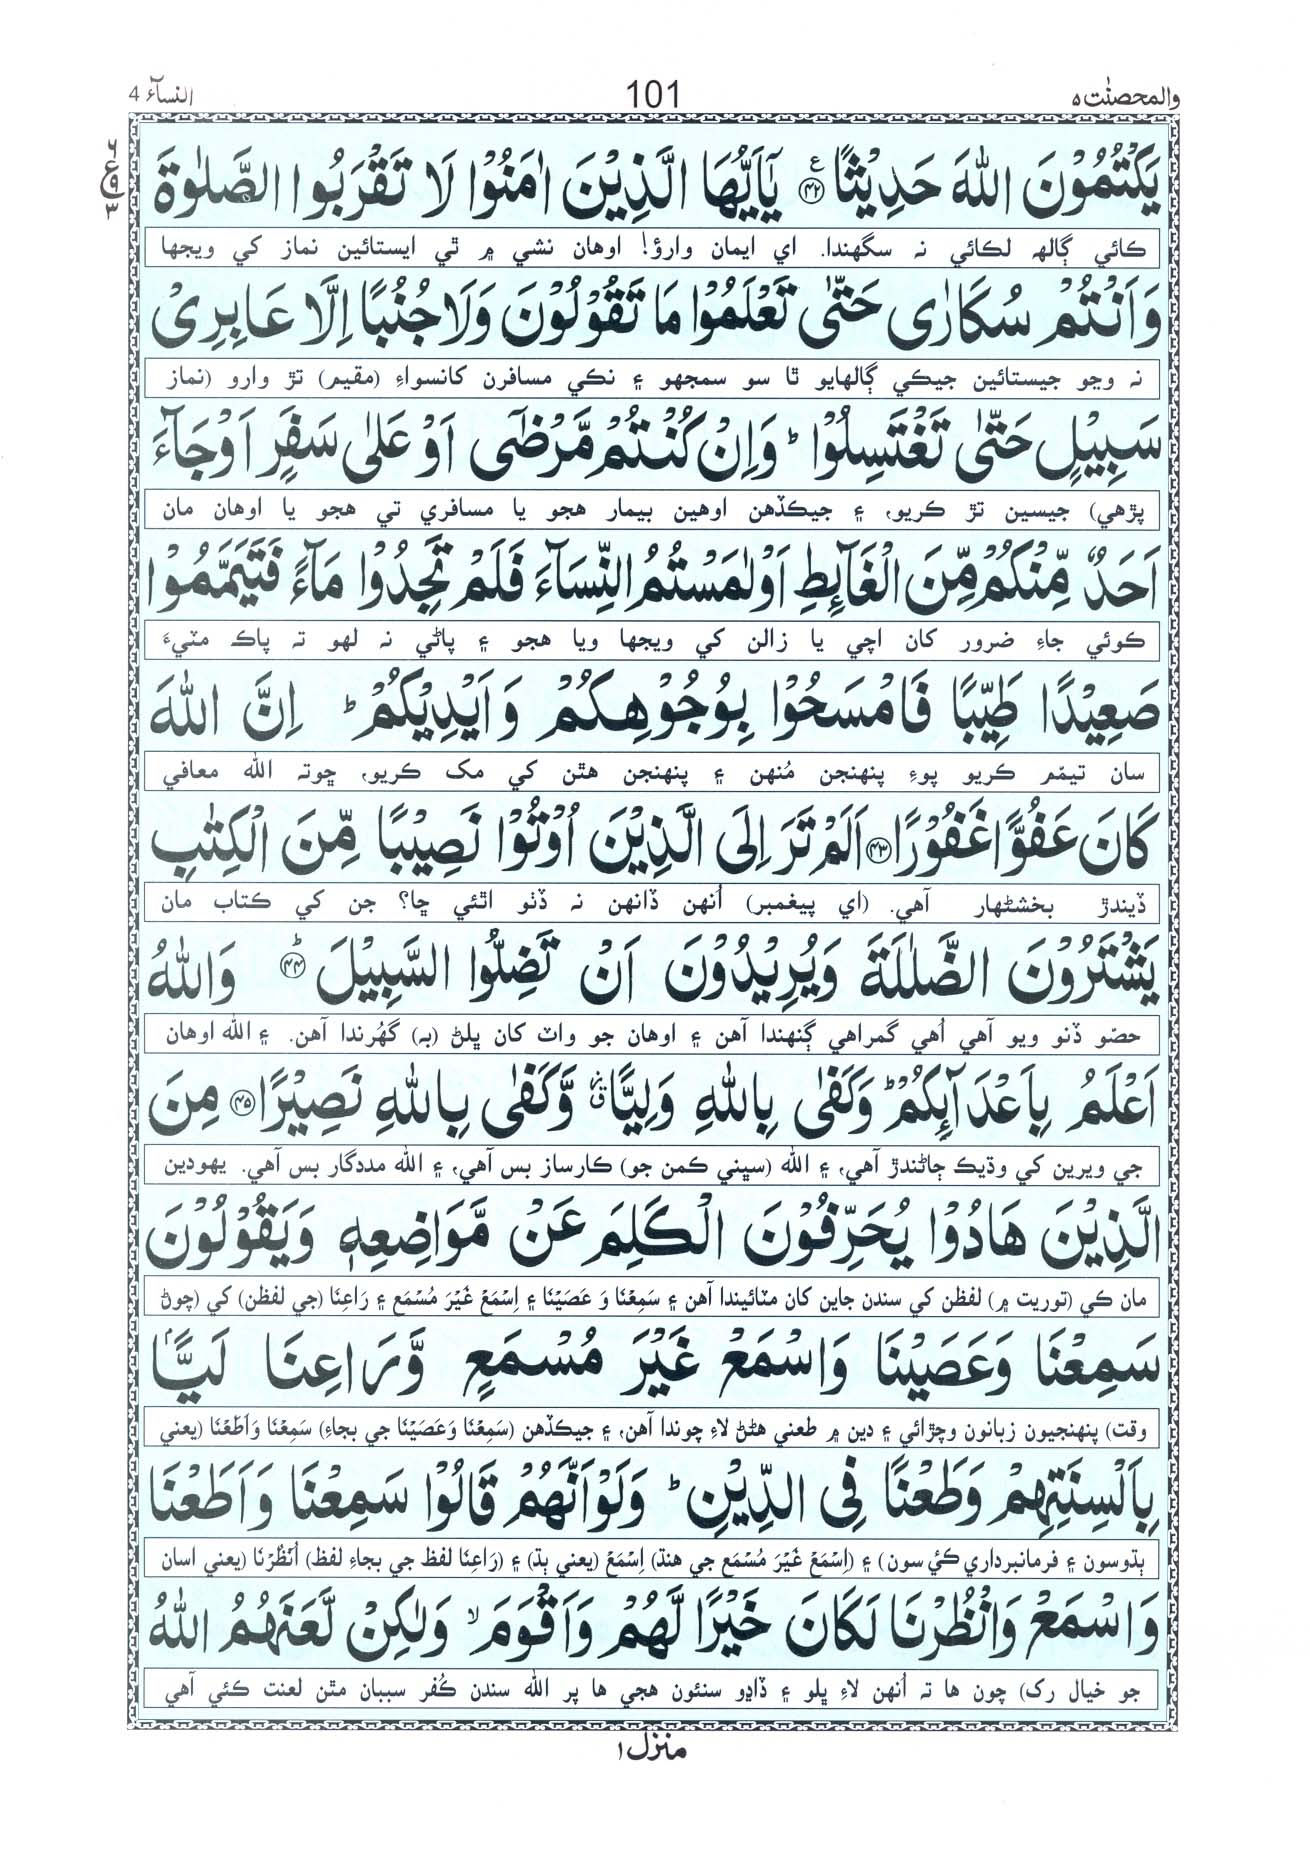 والمحصنٰت ۵
101
النسآء 4
يَكْتُمُوْنَ اللّٰهَ حَدِيْثًا ﴿۴۲﴾ ع يٰٓاَيُّهَا الَّذِيْنَ اٰمَنُوْا لَا تَقْرَبُوا الصَّلٰوةَ
۶
ع ۹
۳
ڪائي ڳالهه لڪائي نہ سگهندا. اي ايمان وارؤ! اوهان نشي ۾ ٿي ايستائين نماز کي ويجها
وَاَنْتُمْ سُكَارٰى حَتّٰى تَعْلَمُوْا مَا تَقُوْلُوْنَ وَلَا جُنُبًا اِلَّا عَابِرِىْ
نہ وڃو جيستائين جيڪي ڳالهايو ٿا سو سمجهو ۽ نڪي مسافرن کانسواءِ (مقيم) تڙ وارو (نماز
سَبِيْلٍ حَتّٰى تَغْتَسِلُوْا ؕ وَاِنْ كُنْتُمْ مَّرْضٰٓى اَوْ عَلٰى سَفَرٍ اَوْ جَآءَ
پڙهي) جيسين تڙ ڪريو، ۽ جيڪڏهن اوهين بيمار هجو يا مسافري تي هجو يا اوهان مان
اَحَدٌ مِّنْكُمْ مِّنَ الْغَآئِطِ اَوْ لٰمَسْتُمُ النِّسَآءَ فَلَمْ تَجِدُوْا مَآءً فَتَيَمَّمُوْا
ڪوئي جاءِ ضرور کان اچي يا زالن کي ويجها ويا هجو ۽ پاڻي نہ لهو تہ پاڪ مٽيءَ
صَعِيْدًا طَيِّبًا فَامْسَحُوْا بِوُجُوْهِكُمْ وَاَيْدِيْكُمْ ؕ اِنَّ اللّٰهَ
سان تيمّم ڪريو پوءِ پنهنجن مُنهن ۽ پنهنجن هٿن کي مک ڪريو، ڇوتہ الله معافي
كَانَ عَفُوًّا غَفُوْرًا ﴿۴۳﴾ اَلَمْ تَرَ اِلَى الَّذِيْنَ اُوْتُوْا نَصِيْبًا مِّنَ الْكِتٰبِ
ڏيندڙ بخشڻهار آهي. (اي پيغمبر) اُنهن ڏانهن نہ ڏٺو اٿئي ڇا؟ جن کي ڪتاب مان
يَشْتَرُوْنَ الضَّلٰلَةَ وَيُرِيْدُوْنَ اَنْ تَضِلُّوا السَّبِيْلَ ﴿۴۴﴾ؕ وَاللّٰهُ
حصّو ڏنو ويو آهي اُهي گمراهي ڳنهندا آهن ۽ اوهان جو واٽ کان ڀلڻ (بہ) گهُرندا آهن. ۽ الله اوهان
اَعْلَمُ بِاَعْدَآئِكُمْ ؕ وَكَفٰى بِاللّٰهِ وَلِيًّا ۙ٘ وَّكَفٰى بِاللّٰهِ نَصِيْرًا ﴿۴۵﴾ مِنَ
جي ويرين کي وڌيڪ ڄاڻندڙ آهي، ۽ الله (سڀني ڪمن جو) ڪارساز بس آهي، ۽ الله مددگار بس آهي. يهودين
الَّذِيْنَ هَادُوْا يُحَرِّفُوْنَ الْكَلِمَ عَنْ مَّوَاضِعِهٖ وَيَقُوْلُوْنَ
مان ڪي (توريت ۾) لفظن کي سندن جاين کان مٽائيندا آهن ۽ سَمِعْنَا وَ عَصَيْنَا ۽ اِسْمَعْ غَيْرَ مُسْمَع ۽ رَاعِنَا (جي لفظن) کي (چوڻ
سَمِعْنَا وَعَصَيْنَا وَاسْمَعْ غَيْرَ مُسْمَعٍ وَّرَاعِنَا لَيًّاۢ
وقت) پنهنجيون زبانون وچڙائي ۽ دين ۾ طعني هڻڻ لاءِ چوندا آهن، ۽ جيڪڏهن (سَمِعْنَا وَعَصَيْنَا جي بجاءِ) سَمِعْنَا وَاَطَعْنَا (يعني
بِاَلْسِنَتِهِمْ وَطَعْنًا فِى الدِّيْنِ ؕ وَلَوْ اَنَّهُمْ قَالُوْا سَمِعْنَا وَاَطَعْنَا
ٻڌوسون ۽ فرمانبرداري ڪئ سون) ۽ (اِسْمَعْ غَيْرَ مُسْمَع جي هنڌ) اِسْمَعْ (يعني ٻڌ) ۽ (رَاعِنَا لفظ جي بجاءِ لفظ) اُنْظُرْنَا (يعني اسان
وَاسْمَعْ وَانْظُرْنَا لَكَانَ خَيْرًا لَّهُمْ وَاَقْوَمَ ۙ وَلٰكِنْ لَّعَنَهُمُ اللّٰهُ
جو خيال رک) چون ها تہ اُنهن لاءِ ڀلو ۽ ڏاڍو سنئون هجي ها پر الله سندن ڪُفر سببان مٿن لعنت ڪئي آهي
منزل ۱